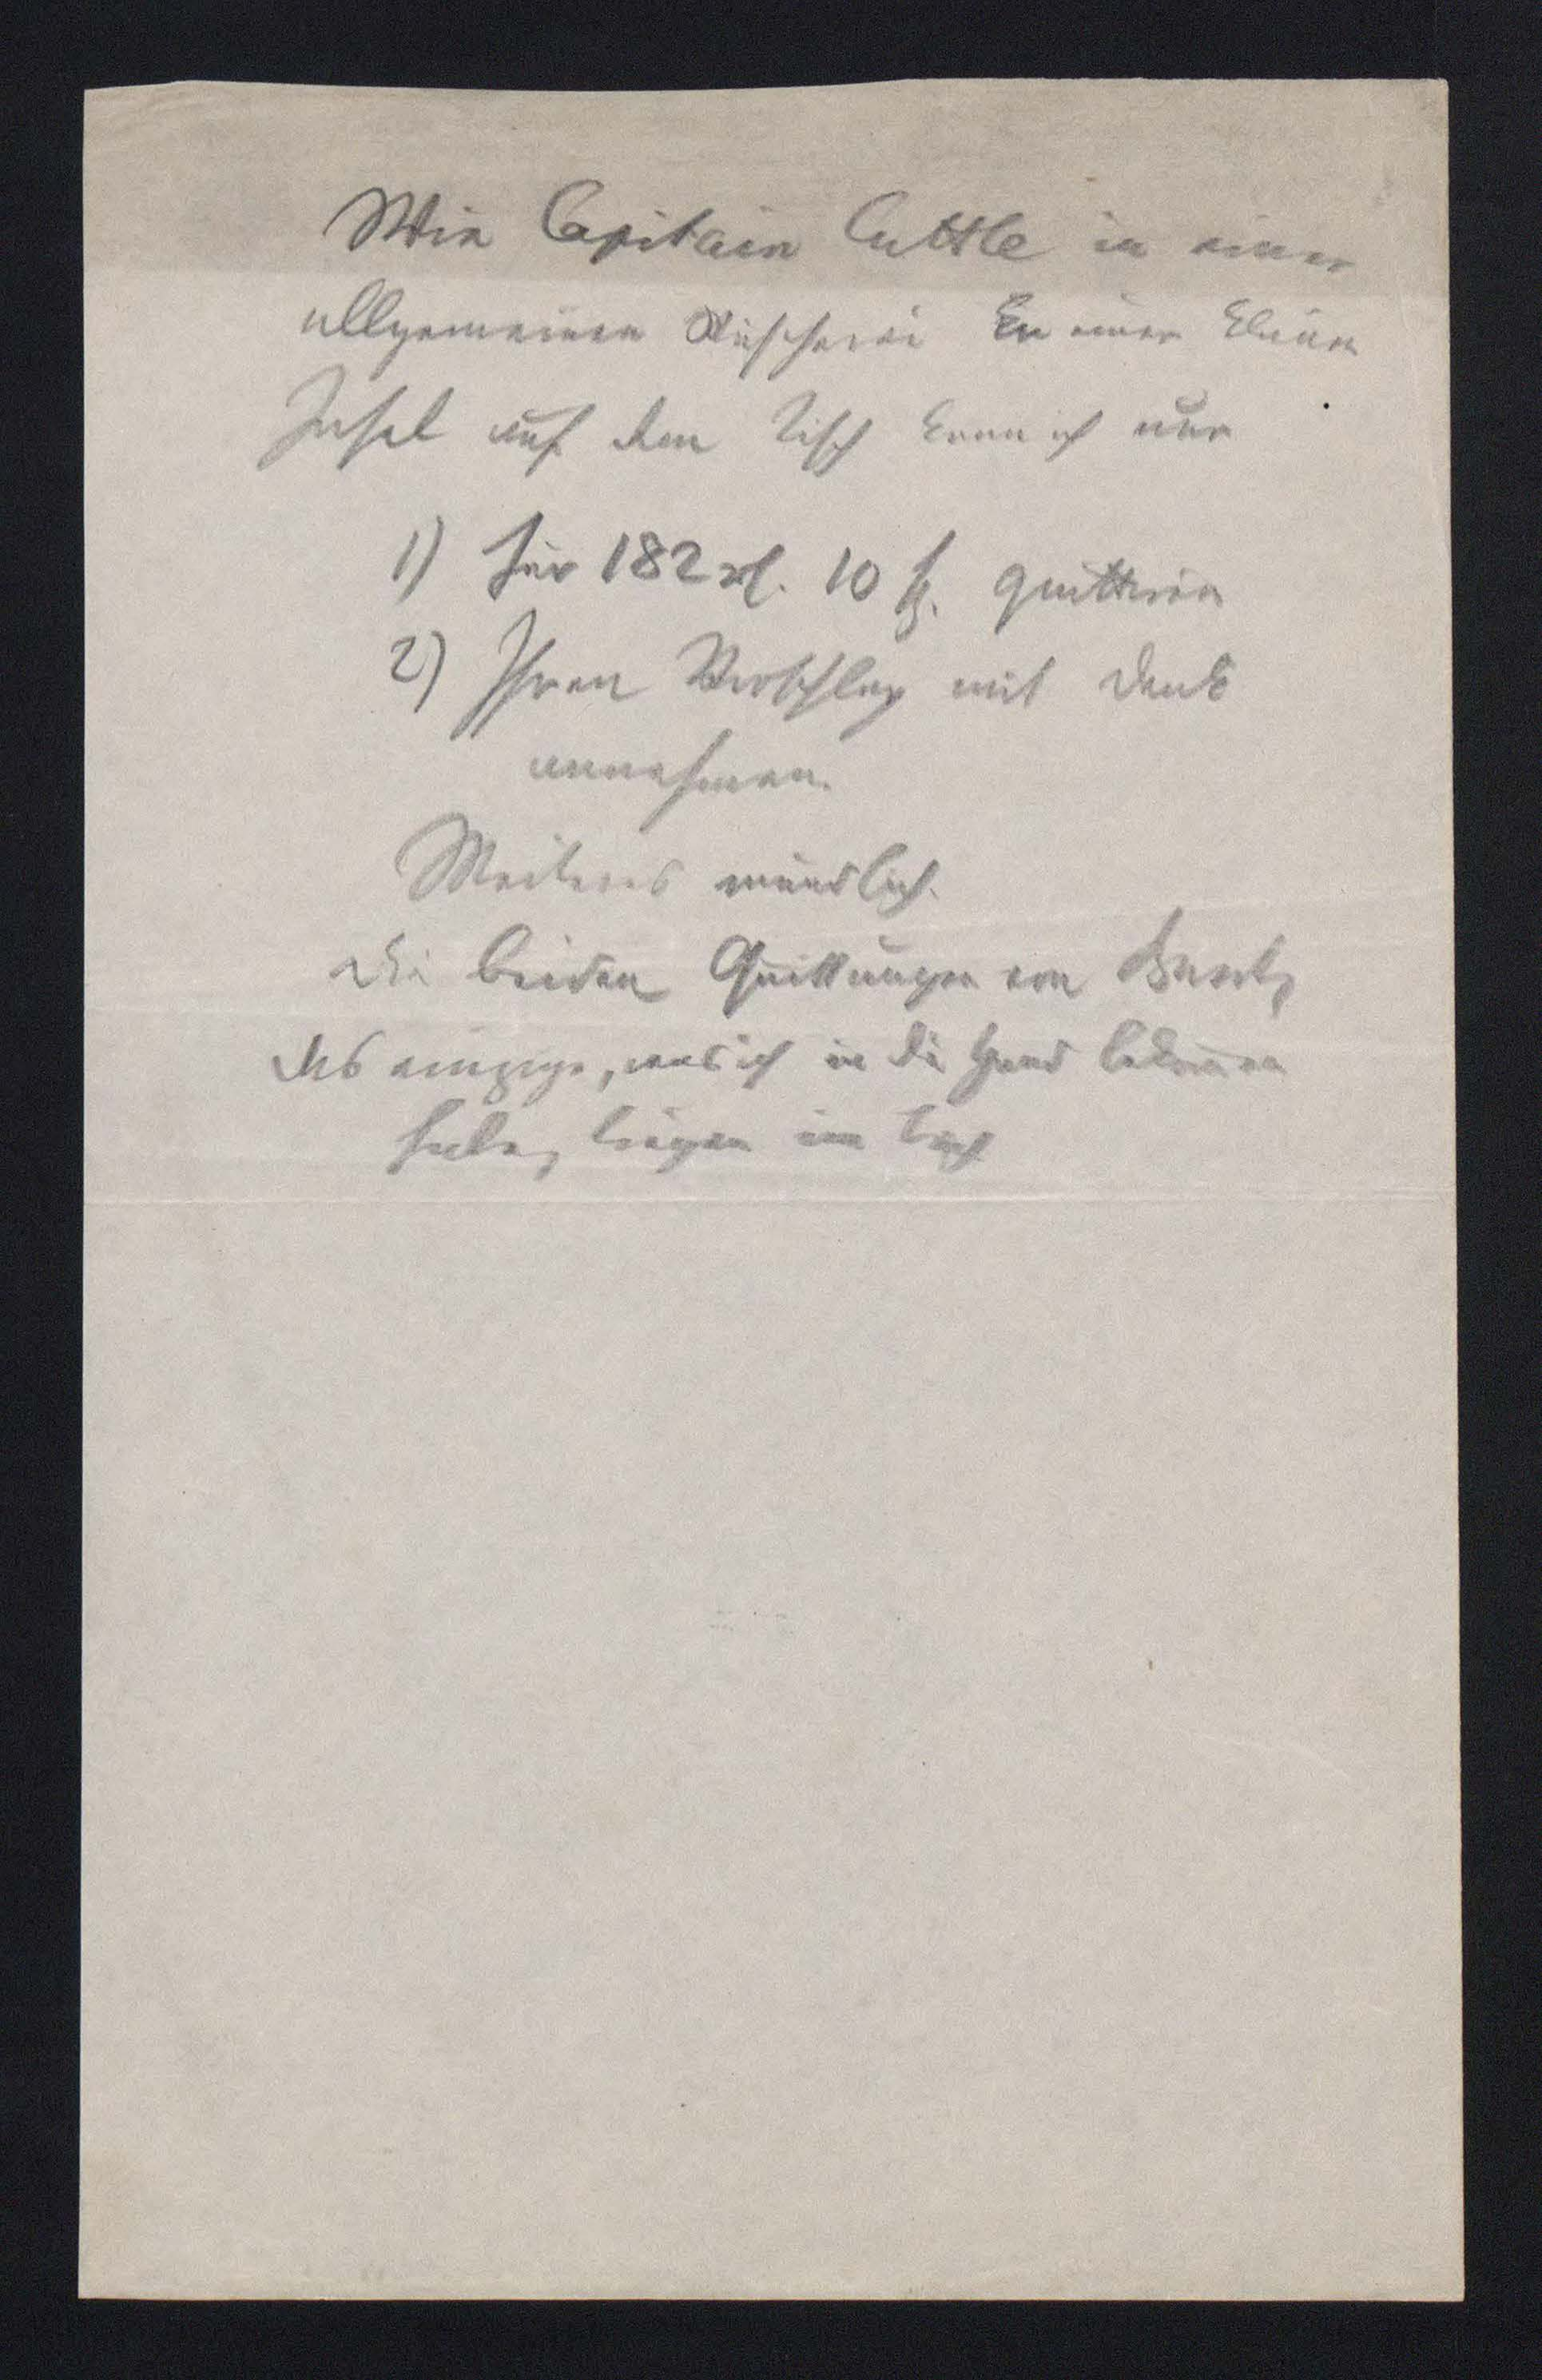 Wie Capitain Cuttle in einer
allgemeinen Wäscherei an einer kleinen
Insel auf dem Tisch kann ich nur
1) für 182 rℓ. 10 sg. quittiren
2) Ihren Vorschlag mit Dank
annehmen.
Weiteres mündlich.
Die beiden Quittungen von
das einzige, was ich in die Hand bekommen
habe, liegen im